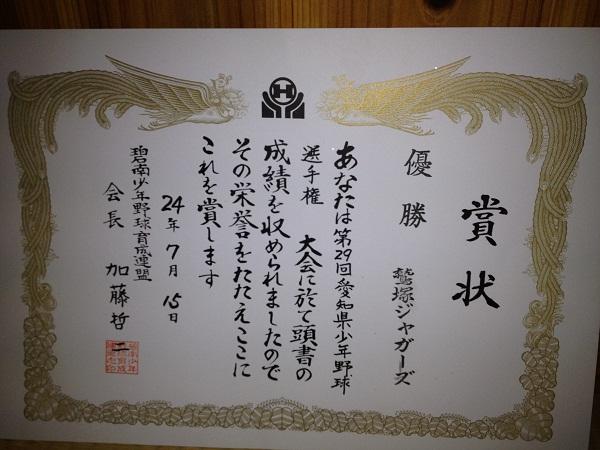 賞状
優勝
鷲塚ジャガーズ
あなたは第29回愛知県少年野球
選手権 大会に於て頭書の
成績を収められましたので
その栄誉をたたえここに
これを賞します
24年7月15日
碧南少年野球育成連盟
会長 加藤哲二